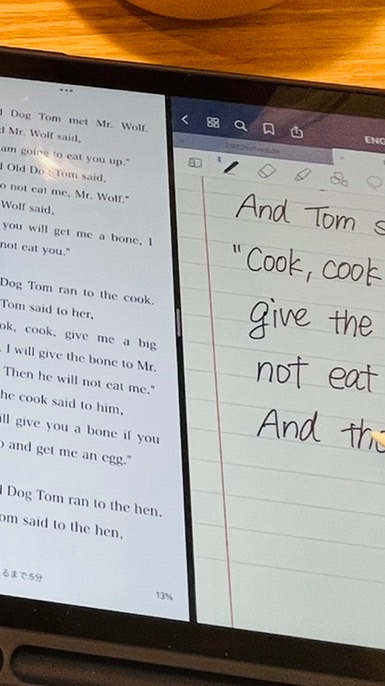 Dog Tom met Mr. Wolf.
Mr. Wolf said,
am going to eat you up."
Old Do Tom said,
not eat me, Mr. Wolf."
Wolf said,
you will get me a bone, I
not eat you."
Dog Tom ran to the cook.
Tom said to her,
ok, cook, give me a big
. I will give the bone to Mr.
Then he will not eat me."
he cook said to him,
ill give you a bone if you
and get me an egg."
Dog Tom ran to the hen.
om said to the hen,
るまで:5分
13%
ENG
And Tom s
"Cook, cook
give the
not eat
And th